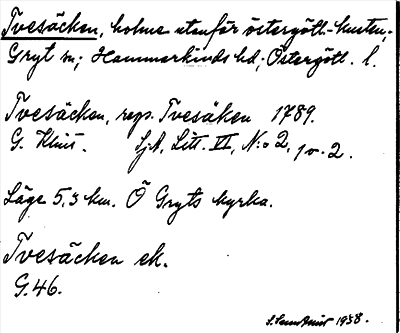 Tvesäcken, holme utanför östergötl.-kusten,
Gryt sn; Hammarkinds hd; Östergötl. l.
Tvesäcken, resp. Tvesäken 1789.
G. Klint. SjA, Litt. II, N:o 2, 1 o. 2.
Läge 5,3 km. Ö Gryts kyrka.
Tvesäcken ek.
G.46.
1938.